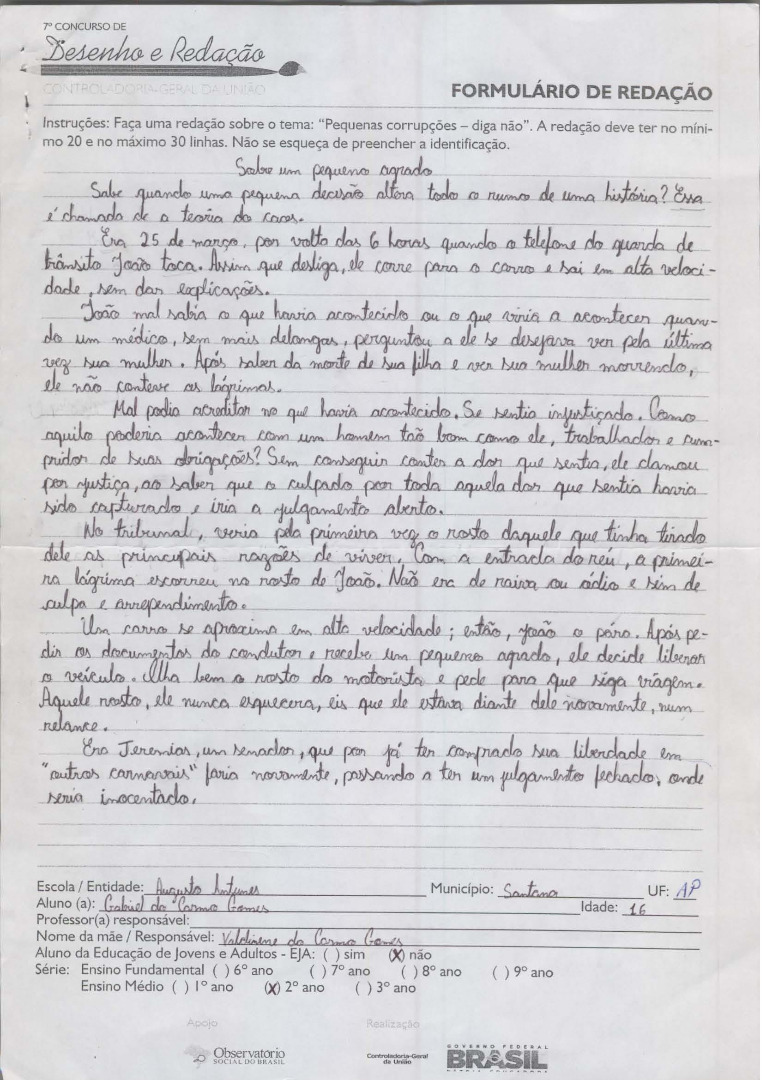 7º CONCURSO DE
Desenho e Redação
CONTROLADORIA-GERAL DA UNIÃO
FORMULÁRIO DE REDAÇÃO
Instruções: Faça uma redação sobre o tema: “Pequenas corrupções – diga não”. A redação deve ter no míni-
mo 20 e no máximo 30 linhas. Não se esqueça de preencher a identificação.
Sobre um pequeno agrado
Sabe quando uma pequena decisão altera todo o rumo de uma história? Essa
é chamada de a teoria do caos.
Era 25 de março, por volta das 6 horas quando o telefone do guarda de
trânsito João toca. Assim que desliga, ele corre para o carro e sai em alta veloci-
dade, sem dar explicações.
João mal sabia o que havia acontecido ou o que viria a acontecer quan-
do um médico, sem mais delongas, perguntou a ele se desejava ver pela última
vez sua mulher. Após saber da morte de sua filha e ver sua mulher morrendo,
ele não conteve as lágrimas.
Mal podia acreditar no que havia acontecido. Se sentia injustiçado. Como
aquilo poderia acontecer com um homem taõ bom como ele, trabalhador e cum-
pridor de suas obrigações? Sem conseguir conter a dor que sentia, ele clamou
por justiça, ao saber que o culpado por toda aquela dor que sentia havia
sido capturado e iria a julgamento aberto.
No tribunal, veria pela primeira vez o rosto daquele que tinha tirado
dele as principais razões de viver. Com a entrada do réu, a primei-
ra lágrima escorreu no rosto de João. Não era de raiva ou ódio e sim de
culpa e arrependimento.
Um carro se aproxima em alta velocidade; então, João o pára. Após pe-
dir os documentos do condutor e recebe um pequeno agrado, ele decide liberar
o veículo. Olha bem o rosto do motorista e pede para que siga viagem.
Aquele rosto, ele nunca esquecera, eis que ele estava diante dele novamente, num
relance.
Era Jeremias, um senador, que por já ter comprado sua liberdade em
"outros carnavais" faria novamente, passando a ter um julgamento fechado, onde
seria inocentado.
Escola / Entidade: Augusto Antunes Município: Santana UF: AP
Aluno (a): Gabriel do Carmo Gomes Idade: 16
Professor(a) responsável:
Nome da mãe / Responsável: Valdirene do Carmo Gomes
Aluno da Educação de Jovens e Adultos - EJA: ( ) sim (X) não
Série: Ensino Fundamental ( ) 6º ano ( ) 7º ano ( ) 8º ano ( ) 9º ano
Ensino Médio ( ) 1º ano (X) 2º ano ( ) 3º ano
Apoio Realização
Observatório
SOCIAL DO BRASIL
Controladoria-Geral
da União
GOVERNO FEDERAL
BRASIL